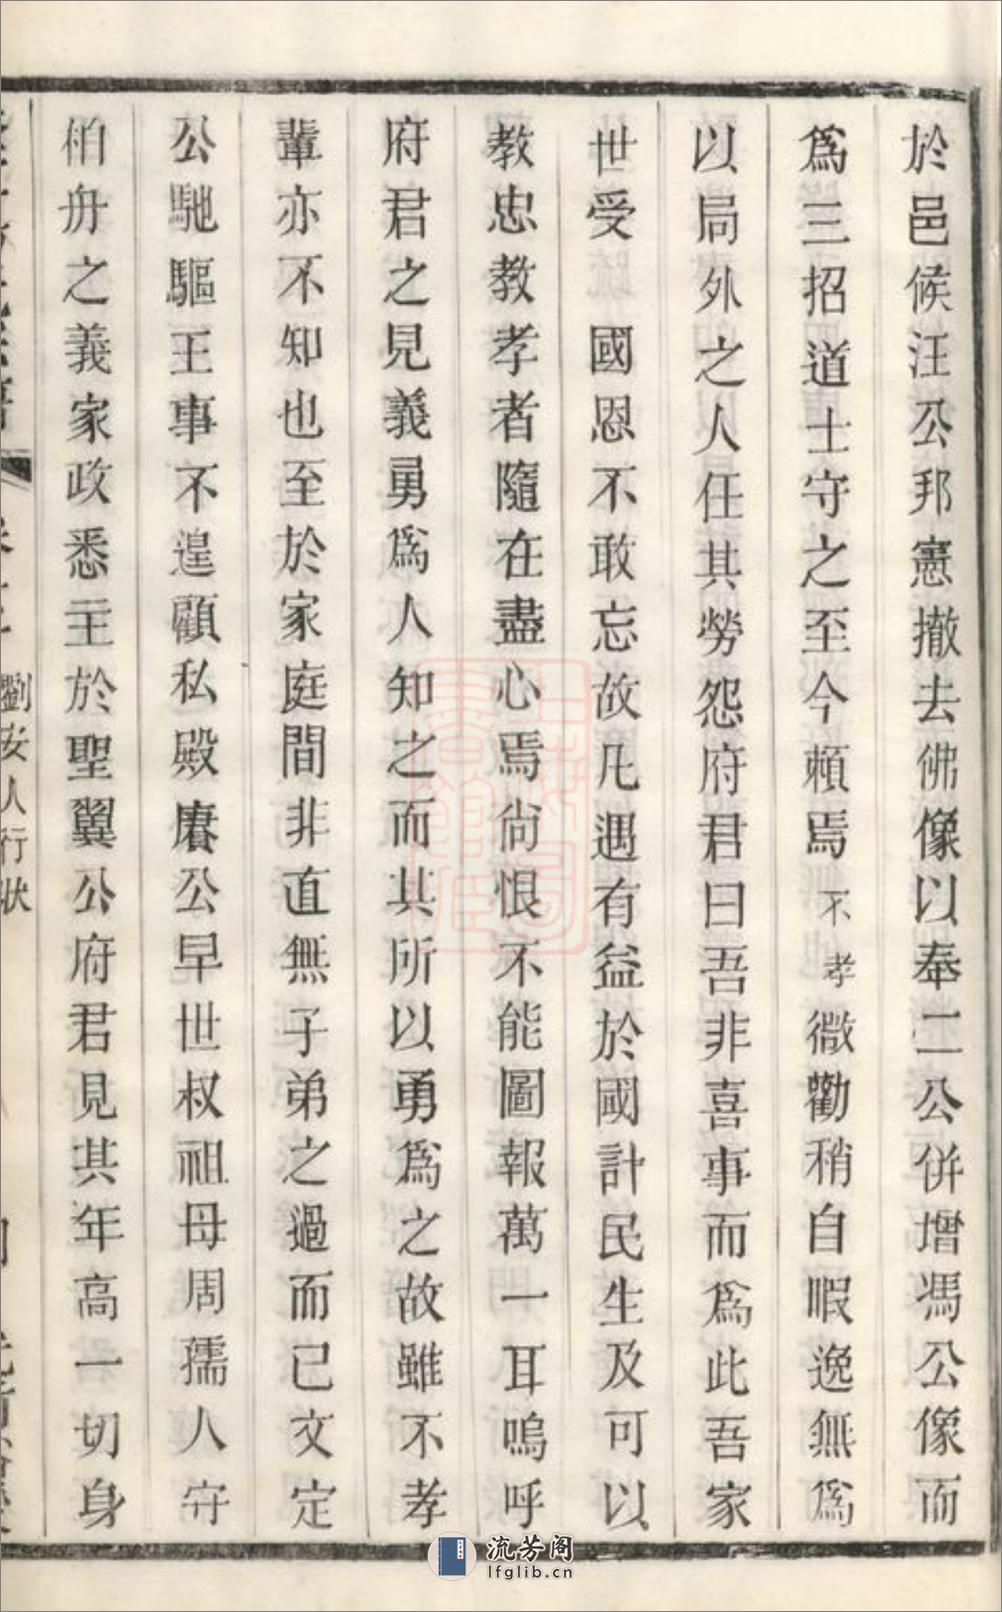 於邑候汪公邦憲撤去佛像以奉二公併增馮公像而
爲三招道士守之至今頼焉不孝微勸稍自暇逸無爲
以局外之人任其勞怨府君曰吾非喜事而爲此吾家
世受國恩不敢忘故凡遇有益於國計民生及可以
教忠教孝者隨在盡心焉尙恨不能圖報萬一耳嗚呼
府君之見義勇爲人知之而其所以勇爲之故雖不孝
輩亦不知也至於家庭間非直無子弟之過而已文定
公馳驅王事不遑顧私殿賡公早世叔祖母周孺人守
栢舟之義家政悉主於聖翼公府君見其年高一切身
劉安人行狀
流芳阁
lfglib.cn